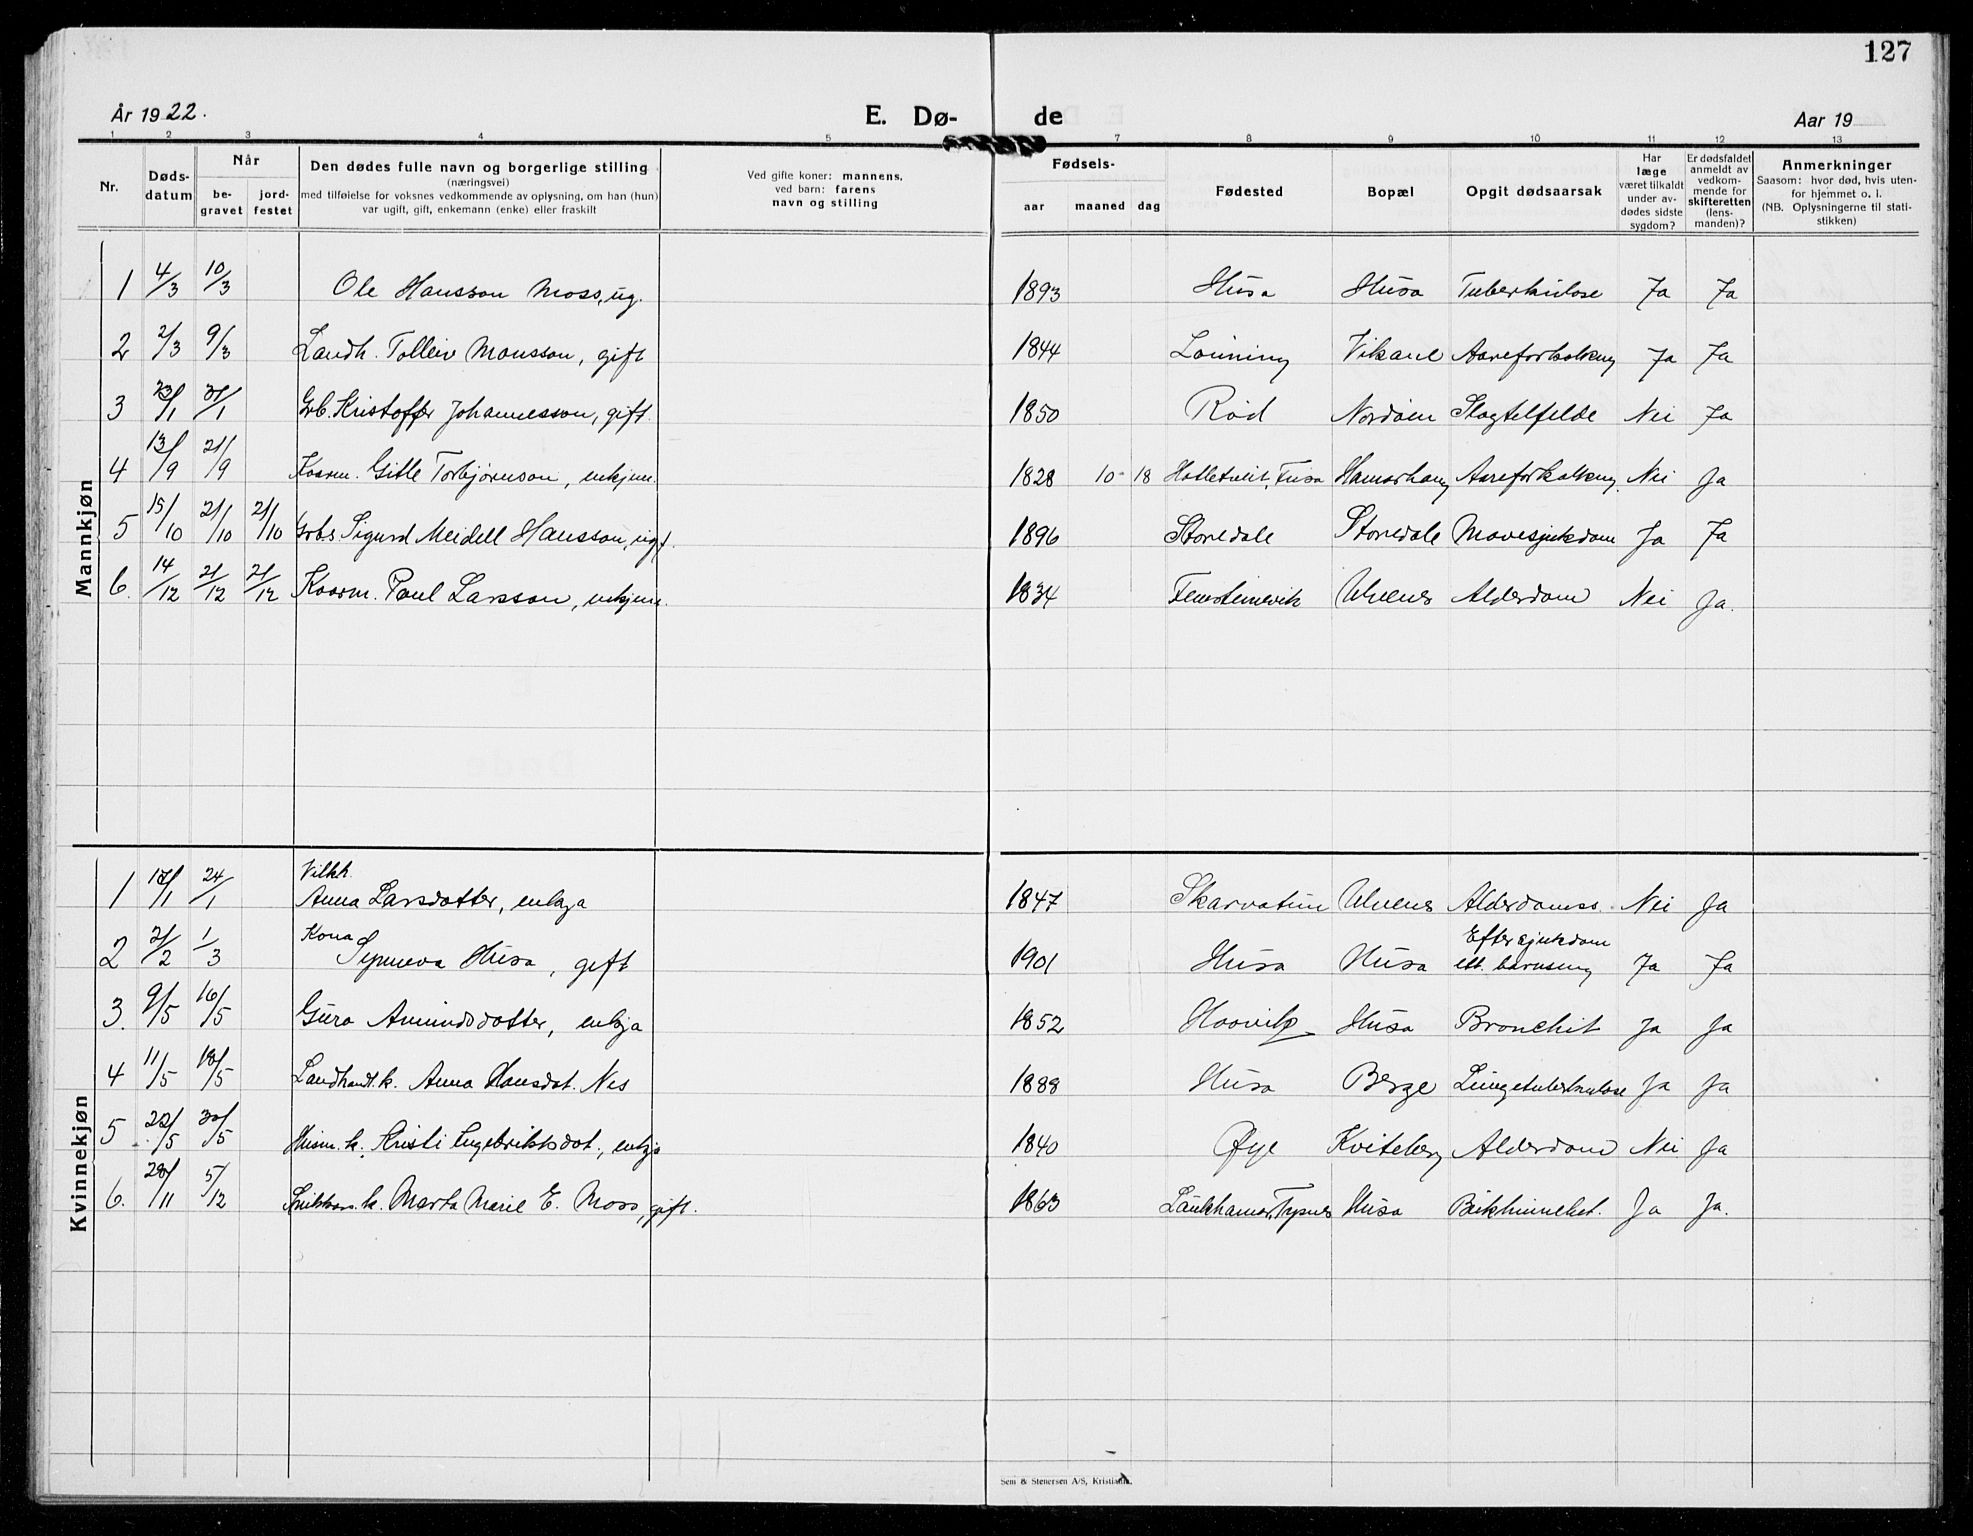 127
År 1922. E. Dø- de Aar 19
1 2 3 4 5 7 8 9 10 11 12 13
Nr. Døds-datum Når be-gravet jord-festet Den dødes fulle navn og borgerlige stilling (næringsvei) med tilføielse for voksnes vedkommende av oplysning, om han (hun) var ugift, gift, enkemann (enke) eller fraskilt Ved gifte koner: mannens, ved barn: farens navn og stilling Fødsels- aar maaned dag Fødested Bopæl Opgit dødsaarsak Har læge været tilkaldt under av-dødes sidste sygdom? Er dødsfaldet anmeldt av vedkom-mende for skifteretten (lens-manden)? Anmerkninger Saasom: hvor død, hvis uten-for hjemmet o. l. (NB. Oplysningerne til stati-stikken)
Mannkjøn
1 4/3 10/3 Ole Hansson Moss, ug. 1893 Husa Husa Tuberkulose Ja Ja
2 2/3 9/3 Landh. Tolleiv Monsson, gift 1844 Lønning Vikane Aareforkalkng Ja Ja
3 23/1 31/1 Grb. Kristoffer Johannesson, gift. 1850 Rød Nordøen Slagtelfelde Nei Ja
4 13/9 21/9 Kaarm. Gitle Torbjørnson, enkjem. 1828 10 - 18 Fusa Hamarhaug Aareforkalkng. Nei Ja
5 15/10 21/10 21/10 Grbs. Sigurd Meidell Hansson, ugt. 1896 Storedale Storedale Mavesjukdom Ja Ja
6. 14/12 21/12 21/12 Kaarm. Paul Larsson, enkjem. 1834 Femsteinevik Ulvenes Alderdom Nei Ja.
Kvinnekjøn
1 17/1 24/1 Vilkk. Anna Larsdotter, enkja 1847 Skarvatun Ulvenes Alderdomss. Nei Ja
2 21/2 1/3 Kona Synneva Husa, gift 1901 Husa Husa Efter sjukdom ett. barnseng Ja Ja
3. 9/5 16/5 Guro Amundsdotter, enkja 1852 Husa Bronchit Ja Ja
4 11/5 18/5 Landhandl.k. Anna Hansdot. Nes 1888 Husa Berge Lungetuberkulose Ja Ja
5 22/5 30/5 Husm. k. Kristi Engebriktsdot., enkja 1840 Øye Kviteberg Alderdom Nei Ja
6. 28/11 5/12 Snikkars. k. Marta Marie E. Moss, gift. 1863 Laukhamar, Tysnes Husa Bukhinnebet. Ja Ja.
Sem & Stenersen A/S, Kristiania.